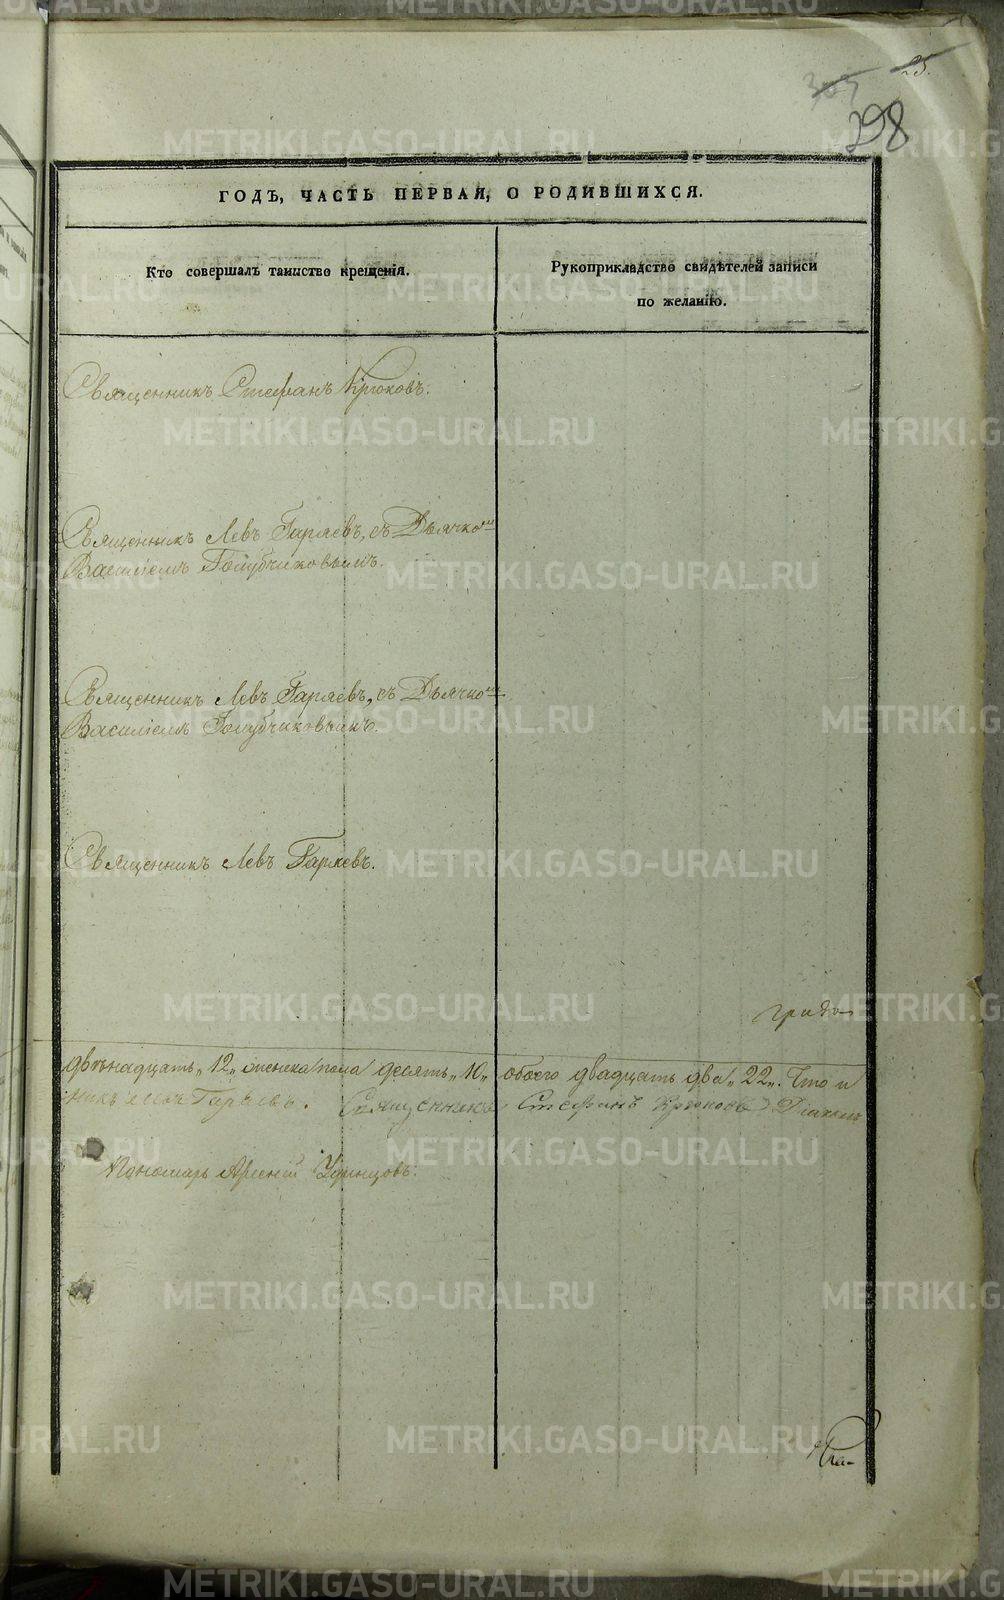 25.
305
398
ГОДЪ, ЧАСТЬ ПЕРВАЯ, О РОДИВШИХСЯ.
Кто совершалъ таинство крещенія.
Рукоприкладство свидѣтелей записи
по желанію.
Священникъ Стефанъ Крюковъ.
Священникъ Левъ Гаряевъ, съ Дьячко
Василіемъ Голубчиковымъ.
Священникъ Левъ Гаряевъ, съ Дьячко
Василіемъ Голубчиковымъ.
Священникъ Левъ Гаряевъ.
двѣнадцать „12„ женска пола десять „10„ обоего двадцать два „22„. Что и
никъ Левъ Гаряевъ. Священникъ Стефанъ Крюковъ
Пономарь Арсеній Удинцовъ.
METRIKI.GASO-URAL.RU